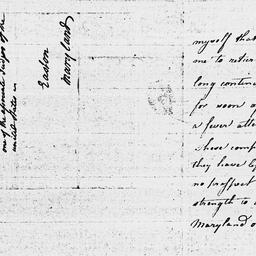 one of the associate Judges of the
united states in
Easton
Maryland
myself that
me to retire
long contin
for room a
a fever atte
these comp
they have left
no prospect
strength to
Maryland o